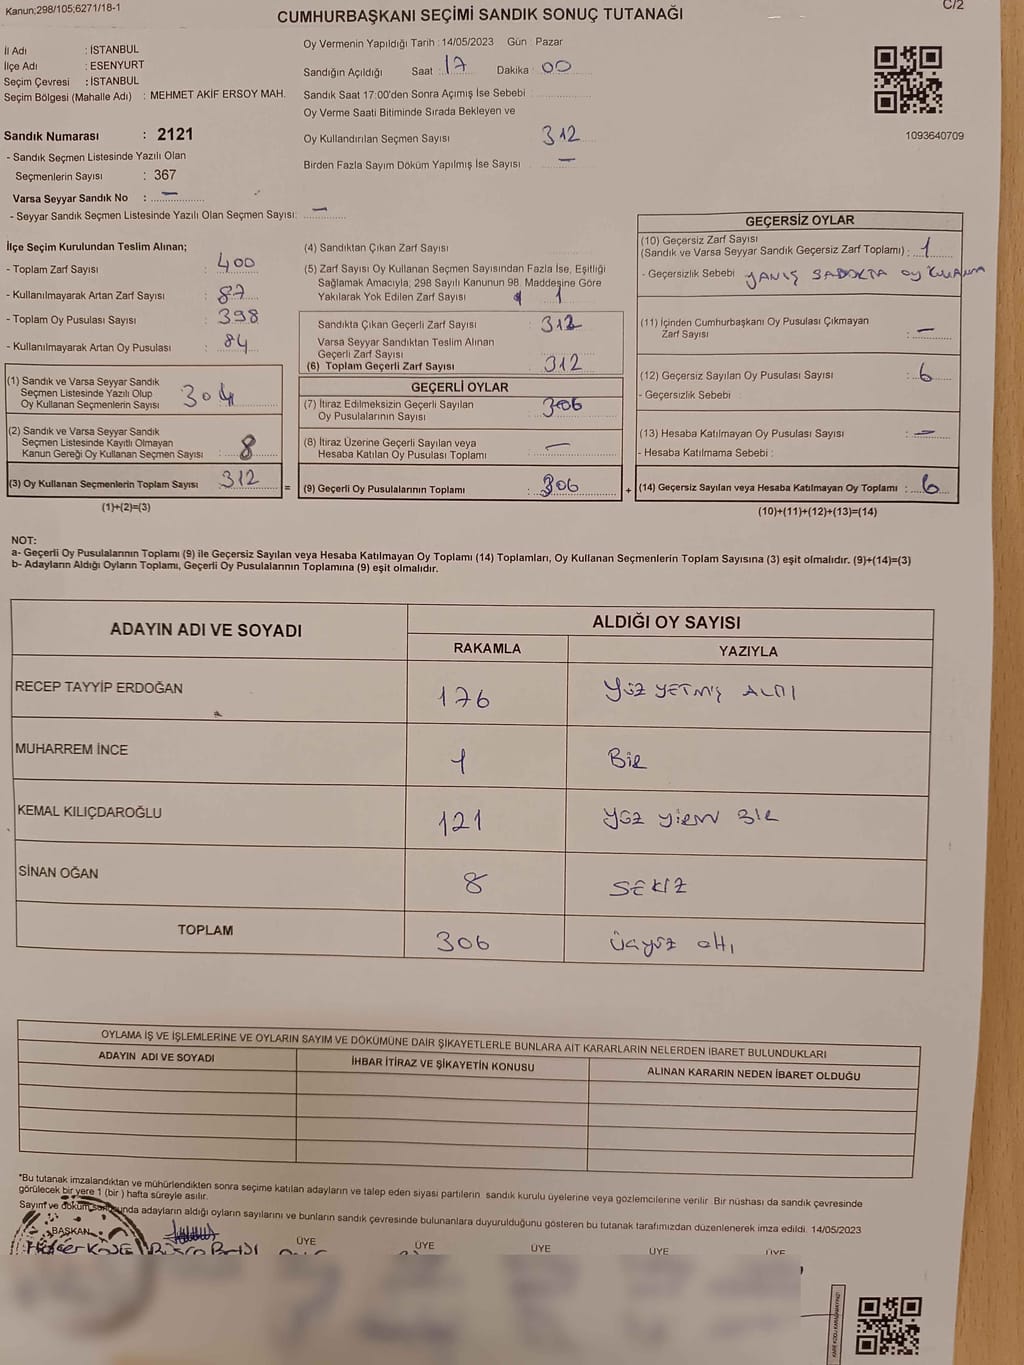 Kanun;298/105;6271/18-1
C/2
CUMHURBAŞKANI SEÇİMİ SANDIK SONUÇ TUTANAĞI
İl Adı : İSTANBUL
İlçe Adı : ESENYURT
Seçim Çevresi : İSTANBUL
Seçim Bölgesi (Mahalle Adı) : MEHMET AKİF ERSOY MAH.
Sandık Numarası : 2121
- Sandık Seçmen Listesinde Yazılı Olan
Seçmenlerin Sayısı : 367
Varsa Seyyar Sandık No : —
- Seyyar Sandık Seçmen Listesinde Yazılı Olan Seçmen Sayısı: —
Oy Vermenin Yapıldığı Tarih : 14/05/2023 Gün : Pazar
Sandığın Açıldığı Saat : 17 Dakika : 00
Sandık Saat 17:00'den Sonra Açımış İse Sebebi :
Oy Verme Saati Bitiminde Sırada Bekleyen ve
Oy Kullandırılan Seçmen Sayısı : 312
Birden Fazla Sayım Döküm Yapılmış İse Sayısı : —
1093640709
İlçe Seçim Kurulundan Teslim Alınan;
- Toplam Zarf Sayısı : 400
- Kullanılmayarak Artan Zarf Sayısı : 87
- Toplam Oy Pusulası Sayısı : 398
- Kullanılmayarak Artan Oy Pusulası : 84
(1) Sandık ve Varsa Seyyar Sandık
Seçmen Listesinde Yazılı Olup
Oy Kullanan Seçmenlerin Sayısı 304
(2) Sandık ve Varsa Seyyar Sandık
Seçmen Listesinde Kayıtlı Olmayan
Kanun Gereği Oy Kullanan Seçmen Sayısı : 8
(3) Oy Kullanan Seçmenlerin Toplam Sayısı : 312 =
(1)+(2)=(3)
(4) Sandıktan Çıkan Zarf Sayısı
(5) Zarf Sayısı Oy Kullanan Seçmen Sayısından Fazla İse, Eşitliği
Sağlamak Amacıyla, 298 Sayılı Kanunun 98. Maddesine Göre
Yakılarak Yok Edilen Zarf Sayısı 1
Sandıkta Çıkan Geçerli Zarf Sayısı : 312
Varsa Seyyar Sandıktan Teslim Alınan
Geçerli Zarf Sayısı
(6) Toplam Geçerli Zarf Sayısı : 312
GEÇERLİ OYLAR
(7) İtiraz Edilmeksizin Geçerli Sayılan
Oy Pusulalarının Sayısı : 306
(8) İtiraz Üzerine Geçerli Sayılan veya
Hesaba Katılan Oy Pusulası Toplamı : —
(9) Geçerli Oy Pusulalarının Toplamı : 306 +
GEÇERSİZ OYLAR
(10) Geçersiz Zarf Sayısı
(Sandık ve Varsa Seyyar Sandık Geçersiz Zarf Toplamı) : 1
- Geçersizlik Sebebi : YANIŞ SADOKTA oy
(11) İçinden Cumhurbaşkanı Oy Pusulası Çıkmayan
Zarf Sayısı : —
(12) Geçersiz Sayılan Oy Pusulası Sayısı : 6
- Geçersizlik Sebebi :
(13) Hesaba Katılmayan Oy Pusulası Sayısı : —
- Hesaba Katılmama Sebebi :
(14) Geçersiz Sayılan veya Hesaba Katılmayan Oy Toplamı : 6
(10)+(11)+(12)+(13)=(14)
NOT:
a- Geçerli Oy Pusulalarının Toplamı (9) ile Geçersiz Sayılan veya Hesaba Katılmayan Oy Toplamı (14) Toplamları, Oy Kullanan Seçmenlerin Toplam Sayısına (3) eşit olmalıdır. (9)+(14)=(3)
b- Adayların Aldığı Oyların Toplamı, Geçerli Oy Pusulalarının Toplamına (9) eşit olmalıdır.
ADAYIN ADI VE SOYADI
ALDIĞI OY SAYISI
RAKAMLA YAZIYLA
RECEP TAYYİP ERDOĞAN 176 YÜZ YETMİŞ ALTI
MUHARREM İNCE 1 Bir
KEMAL KILIÇDAROĞLU 121 YÜZ yirmi BİR
SİNAN OĞAN 8 SEKİZ
TOPLAM 306 üçyüz altı
OYLAMA İŞ VE İŞLEMLERİNE VE OYLARIN SAYIM VE DÖKÜMÜNE DAİR ŞİKAYETLERLE BUNLARA AİT KARARLARIN NELERDEN İBARET BULUNDUKLARI
ADAYIN ADI VE SOYADI İHBAR İTİRAZ VE ŞİKAYETİN KONUSU ALINAN KARARIN NEDEN İBARET OLDUĞU
*Bu tutanak imzalandıktan ve mühürlendikten sonra seçime katılan adayların ve talep eden siyasi partilerin sandık kurulu üyelerine veya gözlemcilerine verilir. Bir nüshası da sandık çevresinde
görülecek bir yere 1 (bir ) hafta süreyle asılır.
Sayım ve döküm sonucunda adayların aldığı oyların sayılarını ve bunların sandık çevresinde bulunanlara duyurulduğunu gösteren bu tutanak tarafımızdan düzenlenerek imza edildi. 14/05/2023
BAŞKAN ÜYE ÜYE ÜYE ÜYE ÜYE